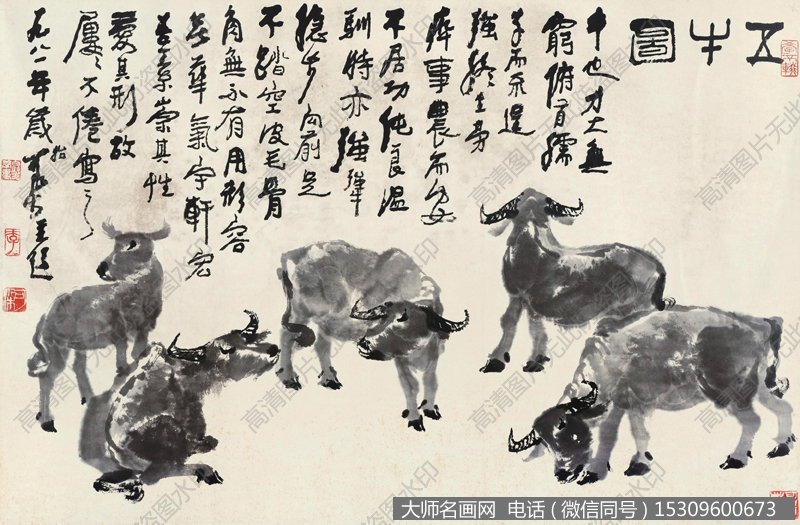 五牛圖
牛也力大無
窮俯首孺
子而不逞
強終生劳
瘁事農而安
不居功纯良温
馴時亦強犟
穩步向前足
不踏空皮毛骨
角無不有用形容
無華氣宇軒宏
吾素崇其性
愛其形故
屢々不倦寫之
一九八二年歲始可染並題
高清图片无此水印
大师名画网 电话（微信同号）15309600673